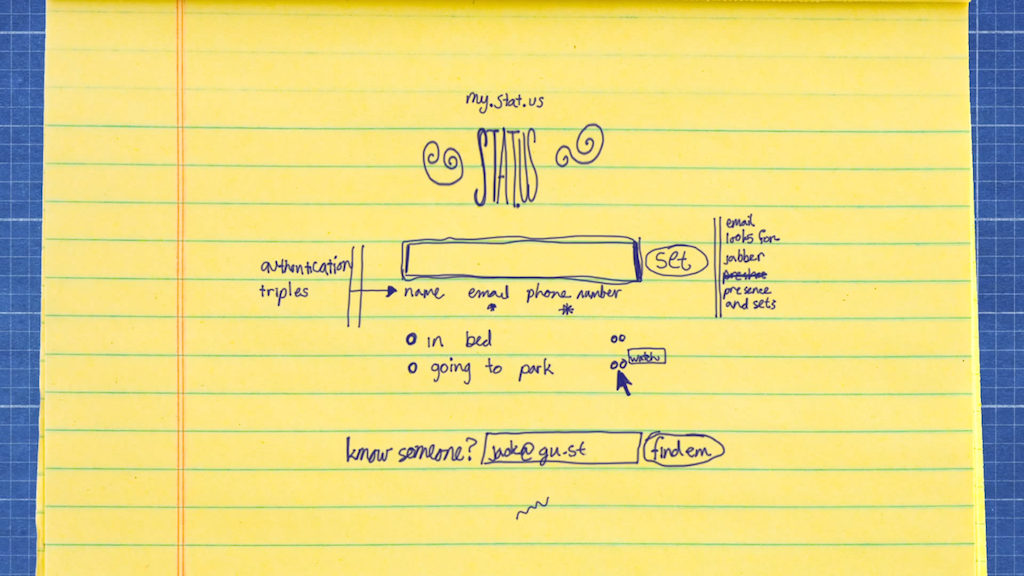 my.stat.us
STAT.US
set
authentication
triples
name email phone number
* *
email
looks for
jabber
presence
and sets
in bed
going to park
watch
know someone? jack@gu.st find em